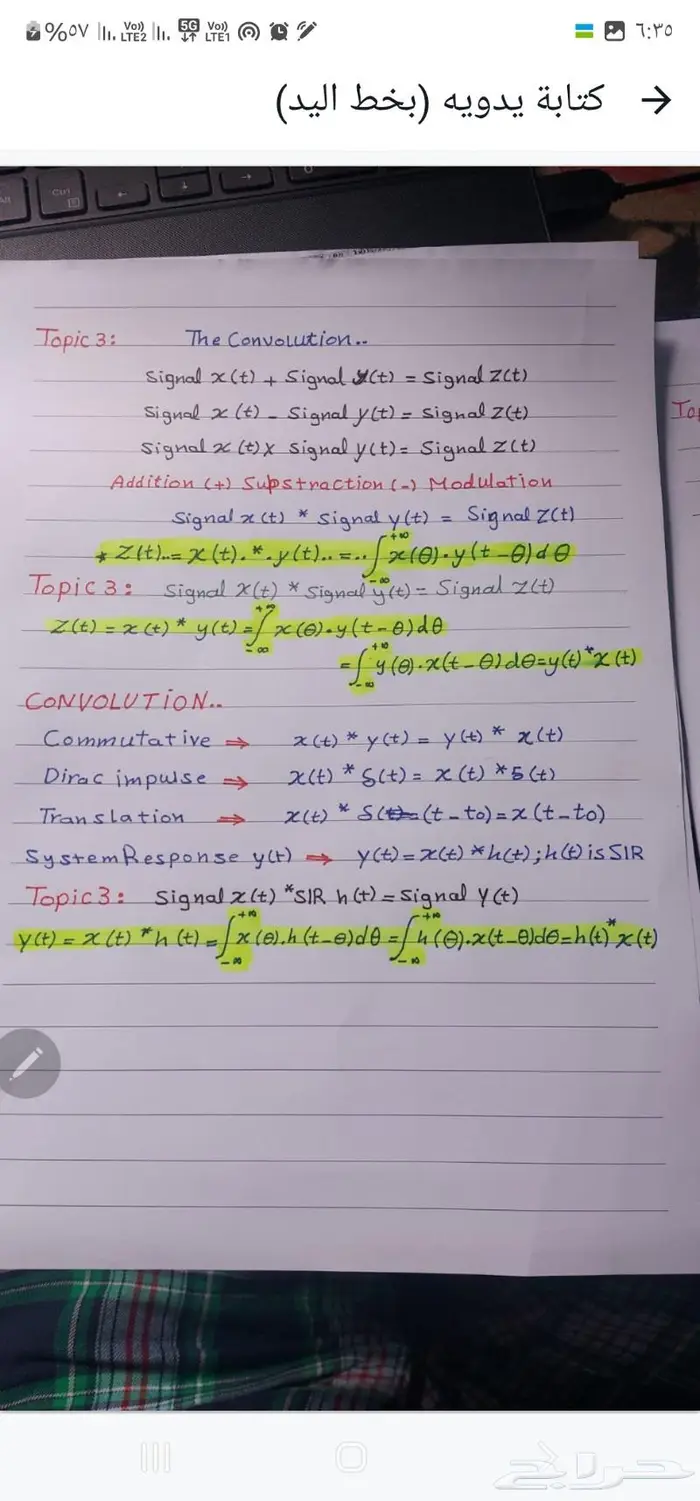 ٦:٣٥
%٥٧ Vo)) LTE2 5G Vo)) LTE1
كتابة يدويه (بخط اليد)
Ctrl
Topic 3: The Convolution..
Signal x(t) + Signal y(t) = Signal Z(t)
Signal x(t) - Signal y(t) = Signal Z(t)
Signal x(t) x Signal y(t) = Signal Z(t)
Addition (+) Substraction (-) Modulation
Signal x(t) * Signal y(t) = Signal Z(t)
* Z(t)..= x(t).*.y(t)..=..∫_{-∞}^{+∞} x(θ).y(t-θ)dθ
Topic 3: Signal x(t) * Signal y(t) = Signal z(t)
Z(t) = x(t) * y(t) = ∫_{-∞}^{+∞} x(θ).y(t-θ)dθ
= ∫_{-∞}^{+∞} y(θ).x(t-θ)dθ = y(t) * x(t)
CONVOLUTION..
Commutative ⇒ x(t) * y(t) = y(t) * x(t)
Dirac impulse ⇒ x(t) * δ(t) = x(t) * δ(t)
Translation ⇒ x(t) * δ(t-t0) = x(t-t0)
System Response y(t) ⇒ y(t) = x(t) * h(t) ; h(t) is SIR
Topic 3: Signal x(t) * SIR h(t) = Signal Y(t)
y(t) = x(t) * h(t) = ∫_{-∞}^{+∞} x(θ).h(t-θ)dθ = ∫_{-∞}^{+∞} h(θ).x(t-θ)dθ = h(t) * x(t)
حراج